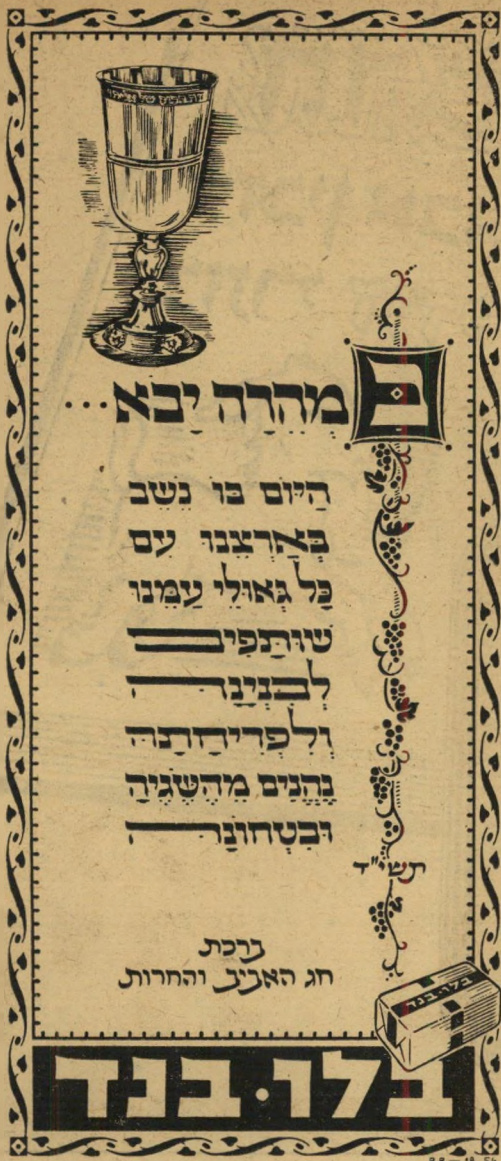 בִּמְהֵרָה יָבֹא...
הַיּוֹם בּוֹ נֵשֵׁב
בְּאַרְצֵנוּ עִם
כָּל גְּאוּלֵי עַמֵּנוּ
שׁוּתָּפִים
לְבִנְיָנָהּ
וְלִפְרִיחָתָהּ
נֶהֱנִים מֵהֶשֵּׂגֶיהָ
וּבִטְחוֹנָהּ
תשי"ד
ברכת
חג האביב והחרות
בלו-בנד
בלו·בנד